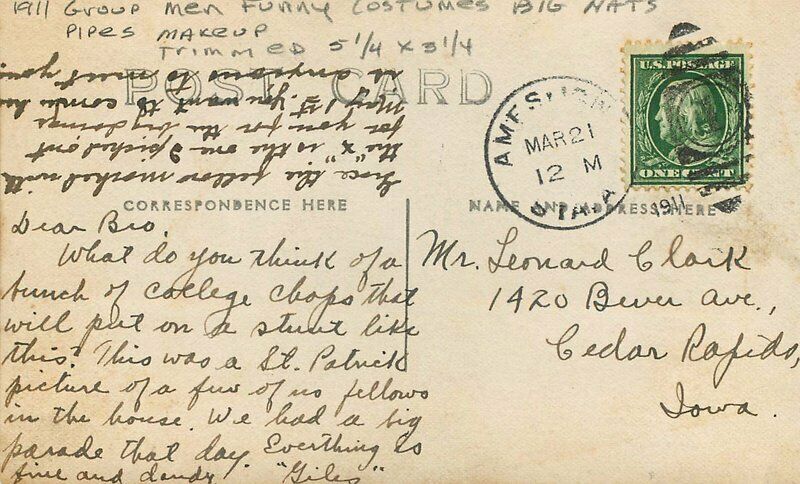 1911 GROUP MEN FUNNY COSTUMES BIG HATS
PIPES MAKEUP
TRIMMED 5 1/4 X 3 1/4
POST CARD
the fellow marked with
the "x" is the one I picked out
for you for the big doings
May 1st if you want to come
is anxious to meet you.
CORRESPONDENCE HERE
Dear Bro,
What do you think of a
bunch of college chaps that
will put on a stunt like
this? This was a St. Patrick
picture of a few of us fellows
in the house. We had a big
parade that day. Everthing is
fine and dandy. "Giles"
AMES
MAR 21
12 M
1911
U.S. POSTAGE
ONE CENT
NAME AND ADDRESS HERE
Mr. Leonard Clark
1420 Bever Ave.,
Cedar Rapids,
Iowa.